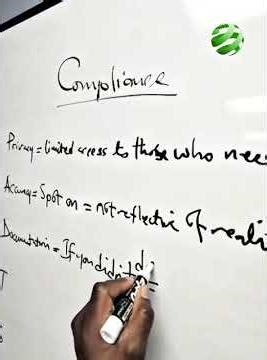 Compliance
Privacy = limited access to those who nee
Accuracy = Spot on = not reflective of reali
Documentation = If you didn't d